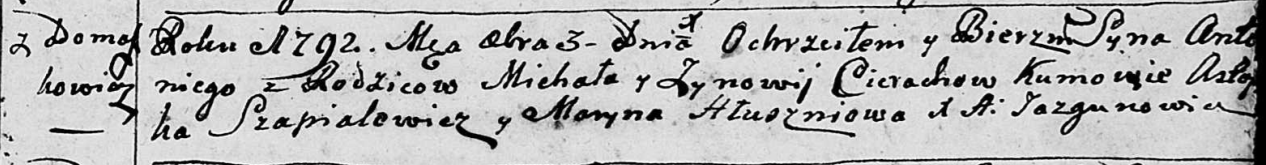 z Domasz Roku 1792. Mca 8bra 3- Dnia Ochrzciłem y Bierzm Syna Anto
kowicz niego z Rodzicow Michała y Zynowij Cierachow Kumowie Astap
ka Szapialewicz y Maryna Hłuszniowa X A: Jazgunowicz